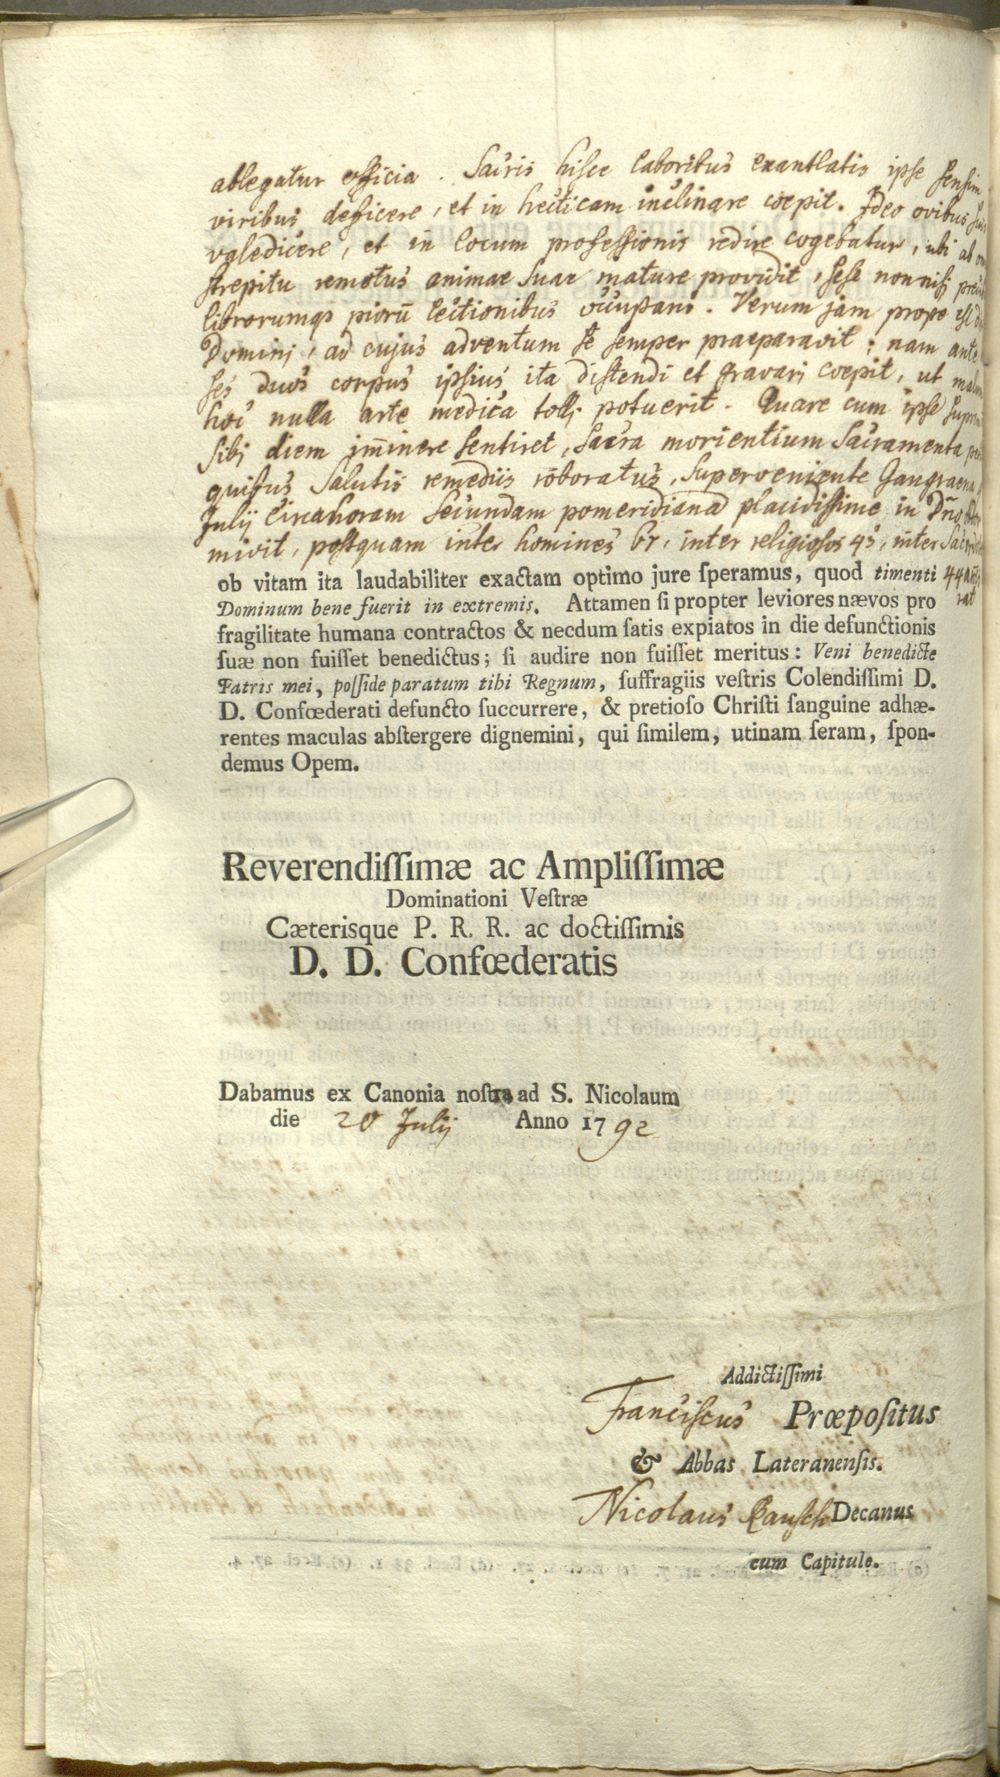 ablegatur officia. Sacris hisce laboribus exantlatis ipse sensim
viribus deficere, et in hecticam inclinare coepit. Ideo ovibus suis
valedicere, et in locum professionis redire cogebatur, ubi ab
strepitu remotus animae suae mature providit, sese non nisi
librorumq3 piorū lectionibus occupans. Verum jam prope est
Domini, ad cujus adventum se semper praeparavit; nam ante
ses duos corpus ipsius ita distendi et gravari coepit, ut
hoc nulla arte medica tolli potuerit. Quare cum ipse
sibi diem iminere sentiret, sacra morientium Sacramenta
quibus salutis remediis roboratus, superveniente Gangraena
Julij circa horam secundam pomeridianā placidissime in Dño
mivit, postquam inter homines 67, inter religiosos 45, inter
44
ob vitam ita laudabiliter exactam optimo jure ſperamus, quod timenti
Dominum bene fuerit in extremis. Attamen ſi propter leviores nævos pro
fragilitate humana contractos & necdum ſatis expiatos in die defunctionis
ſuæ non fuiſſet benedictus; ſi audire non fuiſſet meritus: Veni benedicte
Patris mei, poſſide paratum tibi Regnum, ſuffragiis veſtris Colendiſſimi D.
D. Confœderati defuncto ſuccurrere, & pretioſo Chriſti ſanguine adhæ-
rentes maculas abſtergere dignemini, qui ſimilem, utinam ſeram, ſpon-
demus Opem.
Reverendiſſimæ ac Ampliſſimæ
Dominationi Veſtræ
Cæterisque P. R. R. ac doctiſſimis
D. D. Confœderatis
Dabamus ex Canonia noſtra ad S. Nicolaum
die 20 Julij Anno 1792
Addictiſſimi
Franciscus Præpoſitus
& Abbas Lateranenſis.
Nicolaus Rausch Decanus
cum Capitulo.